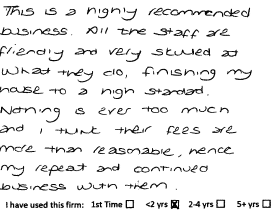 This is a highly recommended
business. All the staff are
friendly and very skilled at
what they do, finishing my
house to a high standard.
Nothing is ever too much
and I think their fees are
more than reasonable, hence
my repeat and continued
business with them.
I have used this firm: 1st Time ☐ <2 yrs ☒ 2-4 yrs ☐ 5+ yrs ☐